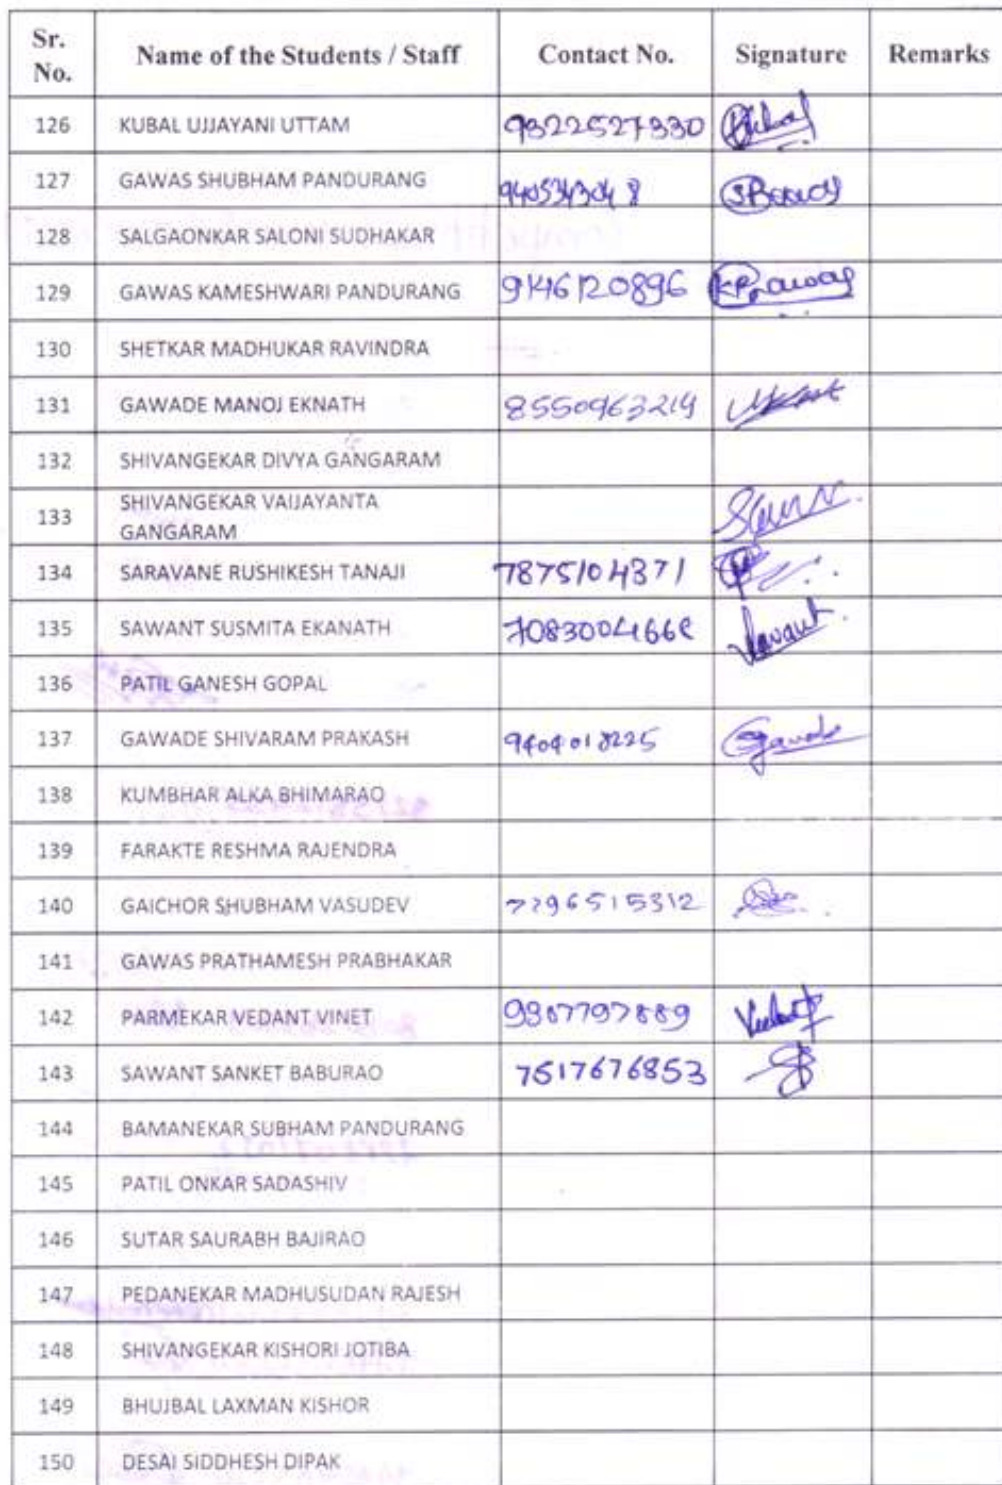 Sr. No. Name of the Students / Staff Contact No. Signature Remarks
126 KUBAL UJJAYANI UTTAM 9322527330
127 GAWAS SHUBHAM PANDURANG 9405343048
128 SALGAONKAR SALONI SUDHAKAR
129 GAWAS KAMESHWARI PANDURANG 9146120896
130 SHETKAR MADHUKAR RAVINDRA
131 GAWADE MANOJ EKNATH 8550963219
132 SHIVANGEKAR DIVYA GANGARAM
133 SHIVANGEKAR VAIJAYANTA
GANGARAM
134 SARAVANE RUSHIKESH TANAJI 7875104371
135 SAWANT SUSMITA EKANATH
136 PATIL GANESH GOPAL
137 GAWADE SHIVARAM PRAKASH 9404018225
138 KUMBHAR ALKA BHIMARAO
139 FARAKTE RESHMA RAJENDRA
140 GAICHOR SHUBHAM VASUDEV
141 GAWAS PRATHAMESH PRABHAKAR
142 PARMEKAR VEDANT VINET
143 SAWANT SANKET BABURAO 7517676853
144 BAMANEKAR SUBHAM PANDURANG
145 PATIL ONKAR SADASHIV
146 SUTAR SAURABH BAJIRAO
147 PEDANEKAR MADHUSUDAN RAJESH
148 SHIVANGEKAR KISHORI JOTIBA
149 BHUJBAL LAXMAN KISHOR
150 DESAI SIDDHESH DIPAK